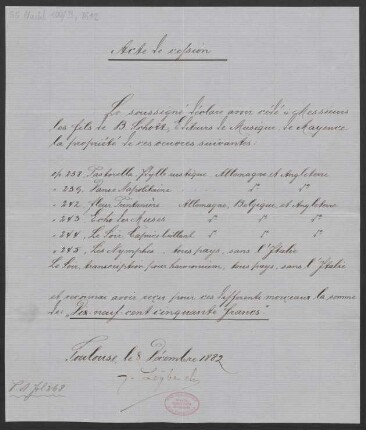 Acte de cession
Le soussigné déclare avoir cédé à Messieurs
les fils de B Schott, Editeurs de Musique, de Mayence
la propriété de ses oeuvres suivantes
op 238 Pastorella, Idylle rustique Allemagne et Angleterre
" 239 Danse Napolitaine " "
" 242 Fleur Allemagne, Belgique et Angleterre
" 243 Echo des Muses " " "
" 244 Le Soir, Caprice brillant " " "
" 245 Les Nymphes, tous pays, sans l'Italie
Le Soir, transcription pour harmonium, tous pays, sans l'Italie
et reconnais avoir reçu pour ces différents morceaux la somme
de Dix neuf cent cinquante francs
Toulouse, le 8 Décembre 1882
Leybach